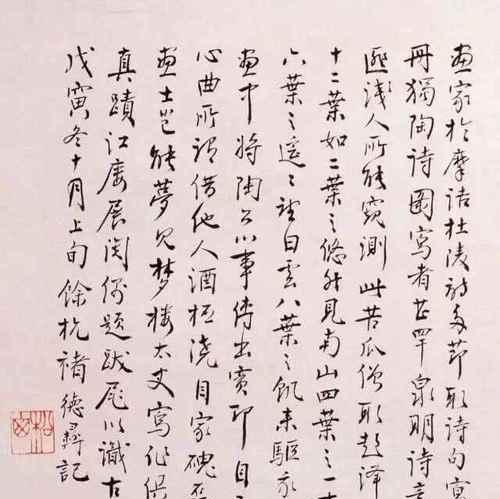 畫家於摩詰杜陵詩多節取詩句寫
冊獨陶詩圖寫者甚罕泉明詩意
匪淺人所能窺測此苦瓜僧取彭澤
十二葉如二葉之悠然見南山四葉之一士
六葉之遙〻望白雲八葉之飢來驅我
畫中將陶公心事傳出實即自
心曲所謂借他人酒杯澆自家磈
畫士豈能夢見夢樓太史寫作俱
真蹟江廔展閱偶題跋尾以識古
戊寅冬十月上旬餘杭褚德彝記
松窗